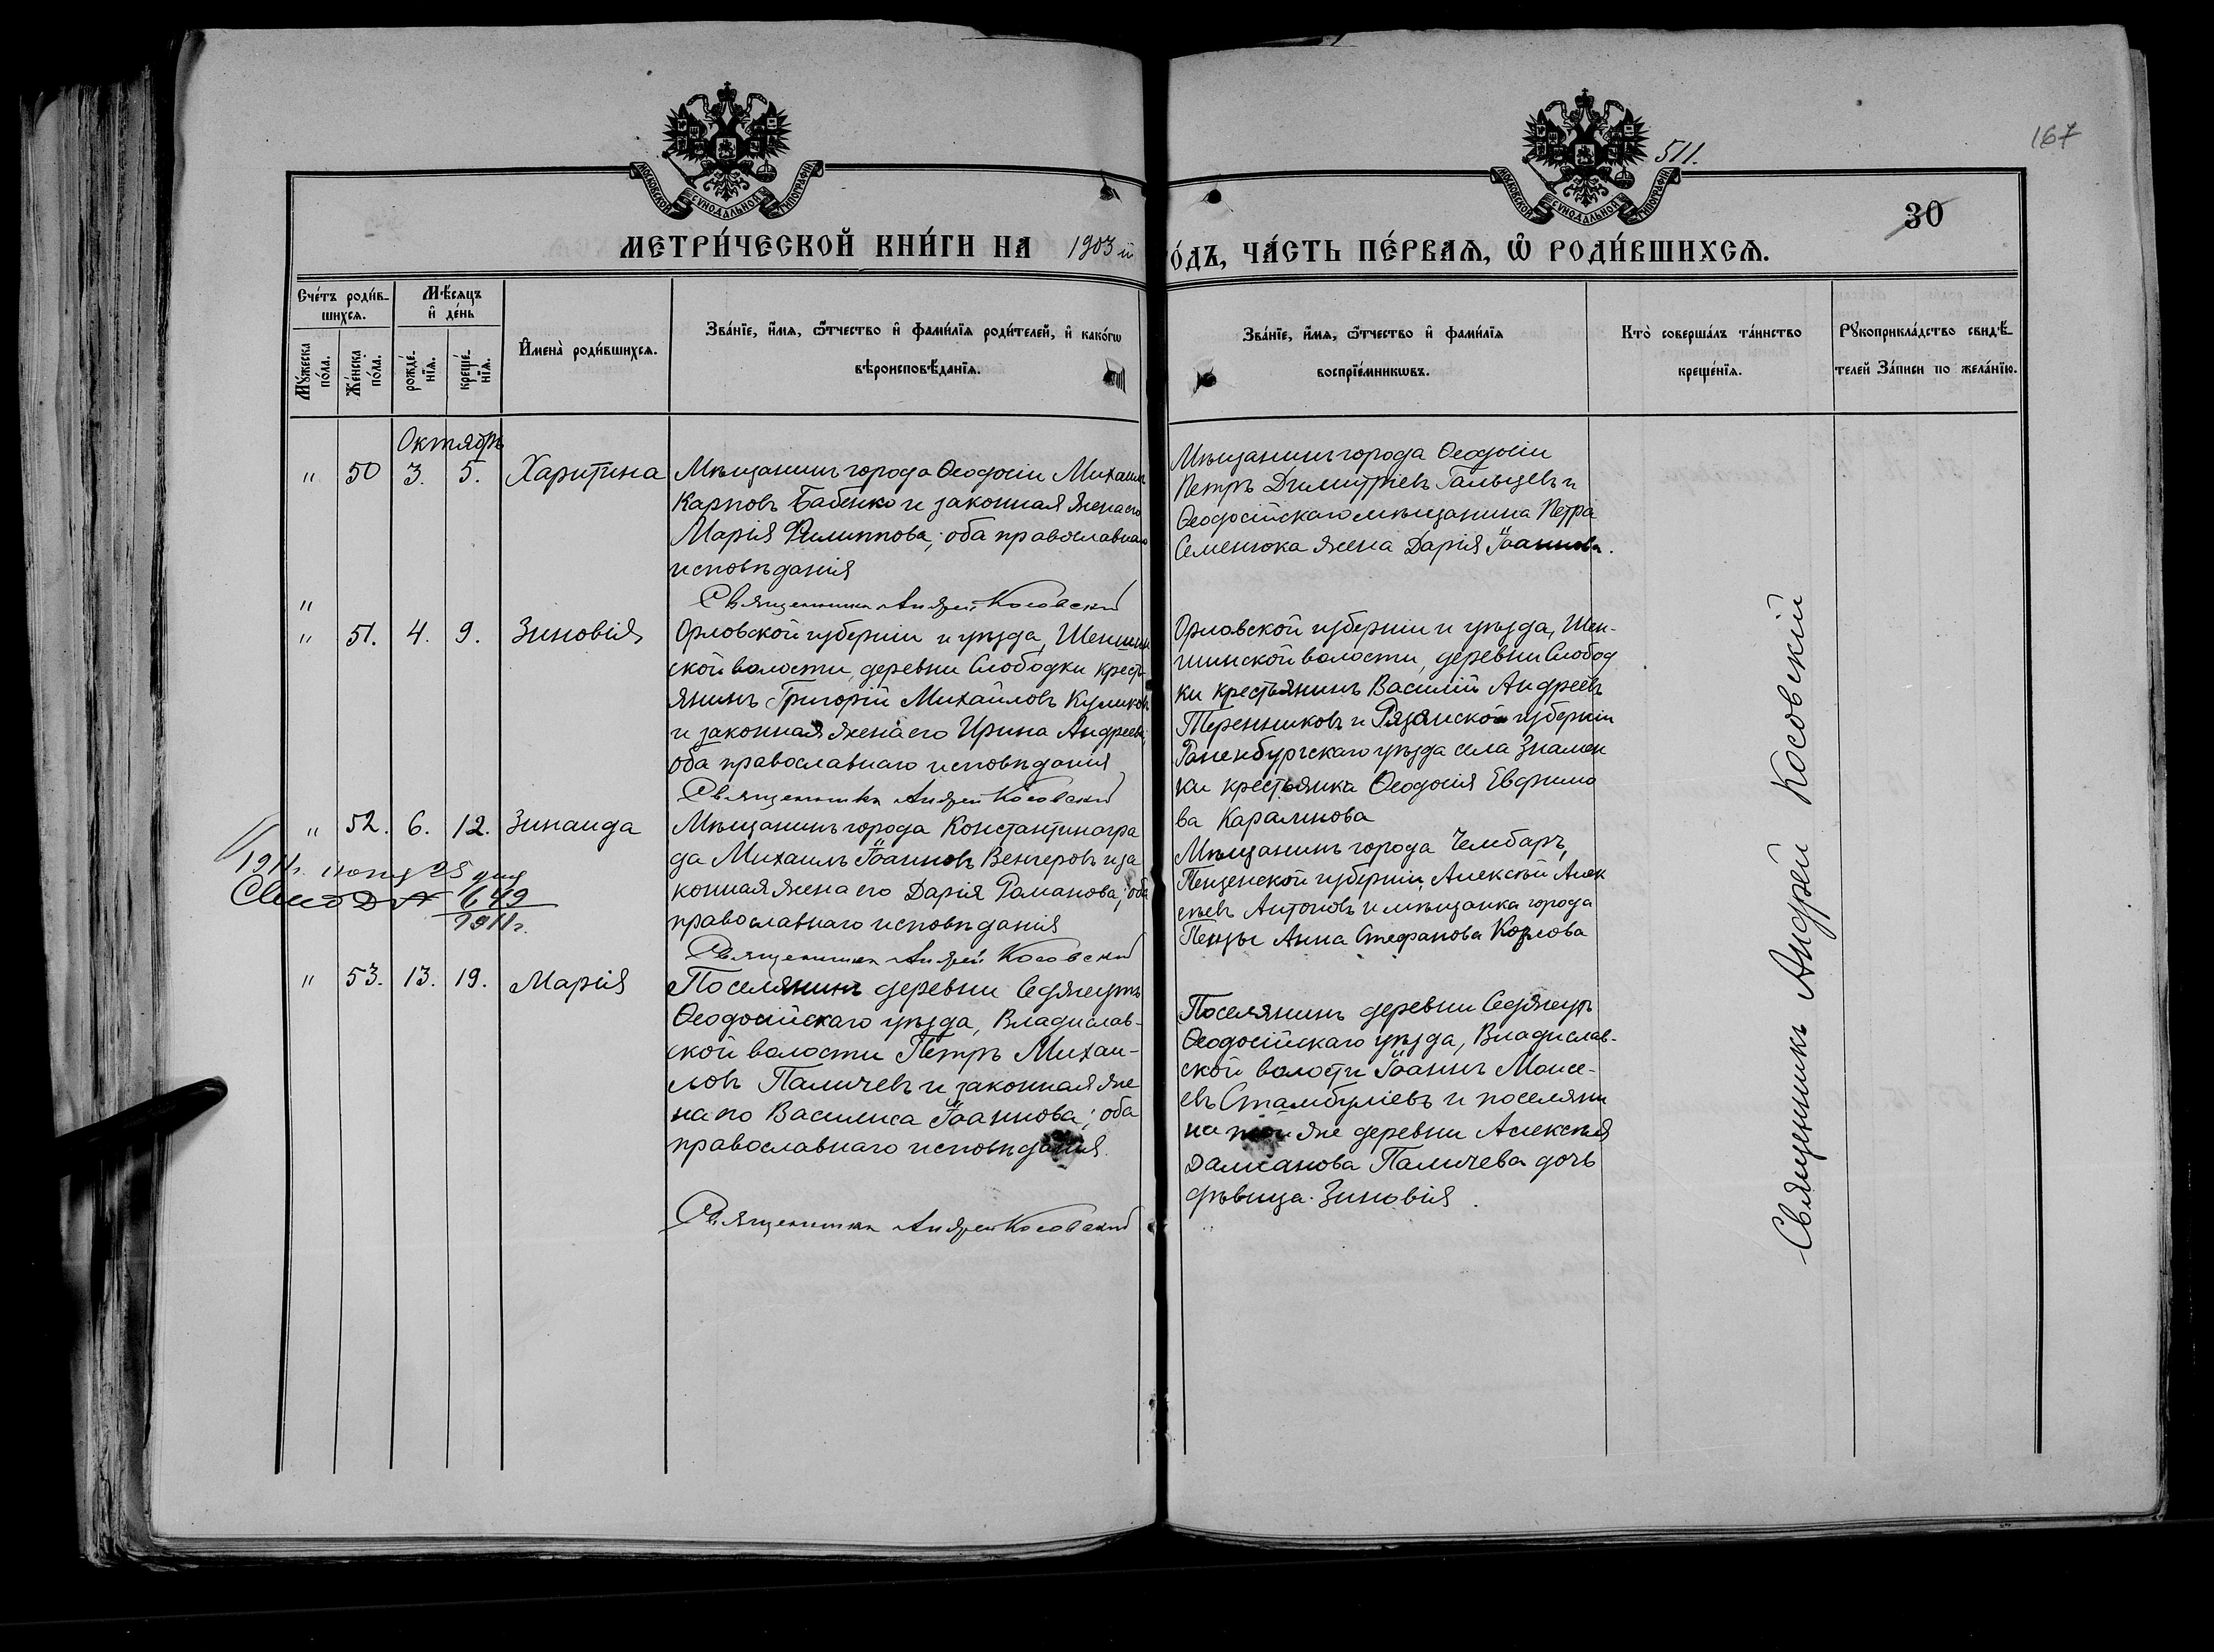 167
511.
30
МОСКОВСКОЙ СУНОДАЛЬНОЙ ТИПОГРАФІИ
МОСКОВСКОЙ СУНОДАЛЬНОЙ ТИПОГРАФІИ
МЕТРИ́ЧЕСКОЙ КНИ́ГИ НА 1903 й
О́ДЪ, ЧА́СТЬ ПЕ́РВАѦ, Ѡ РОДИ́ВШИХСѦ.
Сче́тъ роди́в-
шихсѧ.
Мѣ́сѧцъ
и де́нь
Мꙋ́жеска
по́ла.
Же́нска
по́ла.
рожде́-
нїѧ.
креще́-
нїѧ.
Имена̀ роди́вшихсѧ.
Зва́нїе, и́мѧ, ѻ́тчество и фами́лїѧ роди́телей, и како́гѡ
вѣроисповѣ́данїѧ.
Зва́нїе, и́мѧ, ѻ́тчество и фами́лїѧ
воспрїе́мникѡвъ.
Кто̀ соверша́лъ та́инство
креще́нїѧ.
Рꙋкоприкла́дство свидѣ́-
телей За́писи по жела́нїю.
Октябрь
" 50 3. 5. Харитина
Мѣщанинъ города Ѳеодосіи Михаилъ
Карповъ Бабенко и законная жена его
Марія Филиппова; оба православнаго
исповѣданія
Священникъ Андрей Косовский
Мѣщанинъ города Ѳеодосіи
Петръ Димитріевъ Гальцевъ и
Ѳеодосійскаго мѣщанина Петра
Семенюка жена Дарія Іоаннова.
"
" 51. 4. 9. Зиновія
Орловской губерніи и уѣзда, Шеншин
ской волости, деревни Слободки кресть
янинъ Григорій Михайловъ Куликовъ
и законная жена его Ирина Андреева;
оба православнаго исповѣданія
Священникъ Андрей Косовский
Орловской губерніи и уѣзда, Шен-
шинской волости, деревни Слобод
ки крестьянинъ Василій Андреевъ
Теренниковъ и Рязанской губерніи
Раненбургскаго уѣзда села Знамен
ки крестьянка Ѳеодосія Евфимо
ва Каралнова
" 52. 6. 12. Зинаида
1911г. іюня 25 дня
649
1911г.
Мѣщанинъ города Константиногра
да Михаилъ Іоанновъ Венгеровъ и за
конная жена его Дарія Романова; оба
православнаго исповѣданія
Священникъ Андрей Косовский
Мѣщанинъ города Чембаръ,
Пензенской губерніи, Алексѣй Алек
сѣевъ Антоновъ и мѣщанка города
Пензы Анна Стефанова Козлова
" 53. 13. 19. Марія
Поселянинъ деревни Седжеутъ
Ѳеодосійскаго уѣзда, Владислав-
ской волости Петръ Михаи-
ловъ Паличевъ и законная же
на его Василиса Іоаннова; оба
православнаго исповѣданія.
Священникъ Андрей Косовский
Поселянинъ деревни Седжеутъ
Ѳеодосійскаго уѣзда, Владислав-
ской волости Іоаннъ Моисе-
евъ Стамбуліевъ и поселяни
на той же деревни Алексѣя
Дамианова Паличева дочь
дѣвица Зиновія.
Священникъ Андрей Косовскій